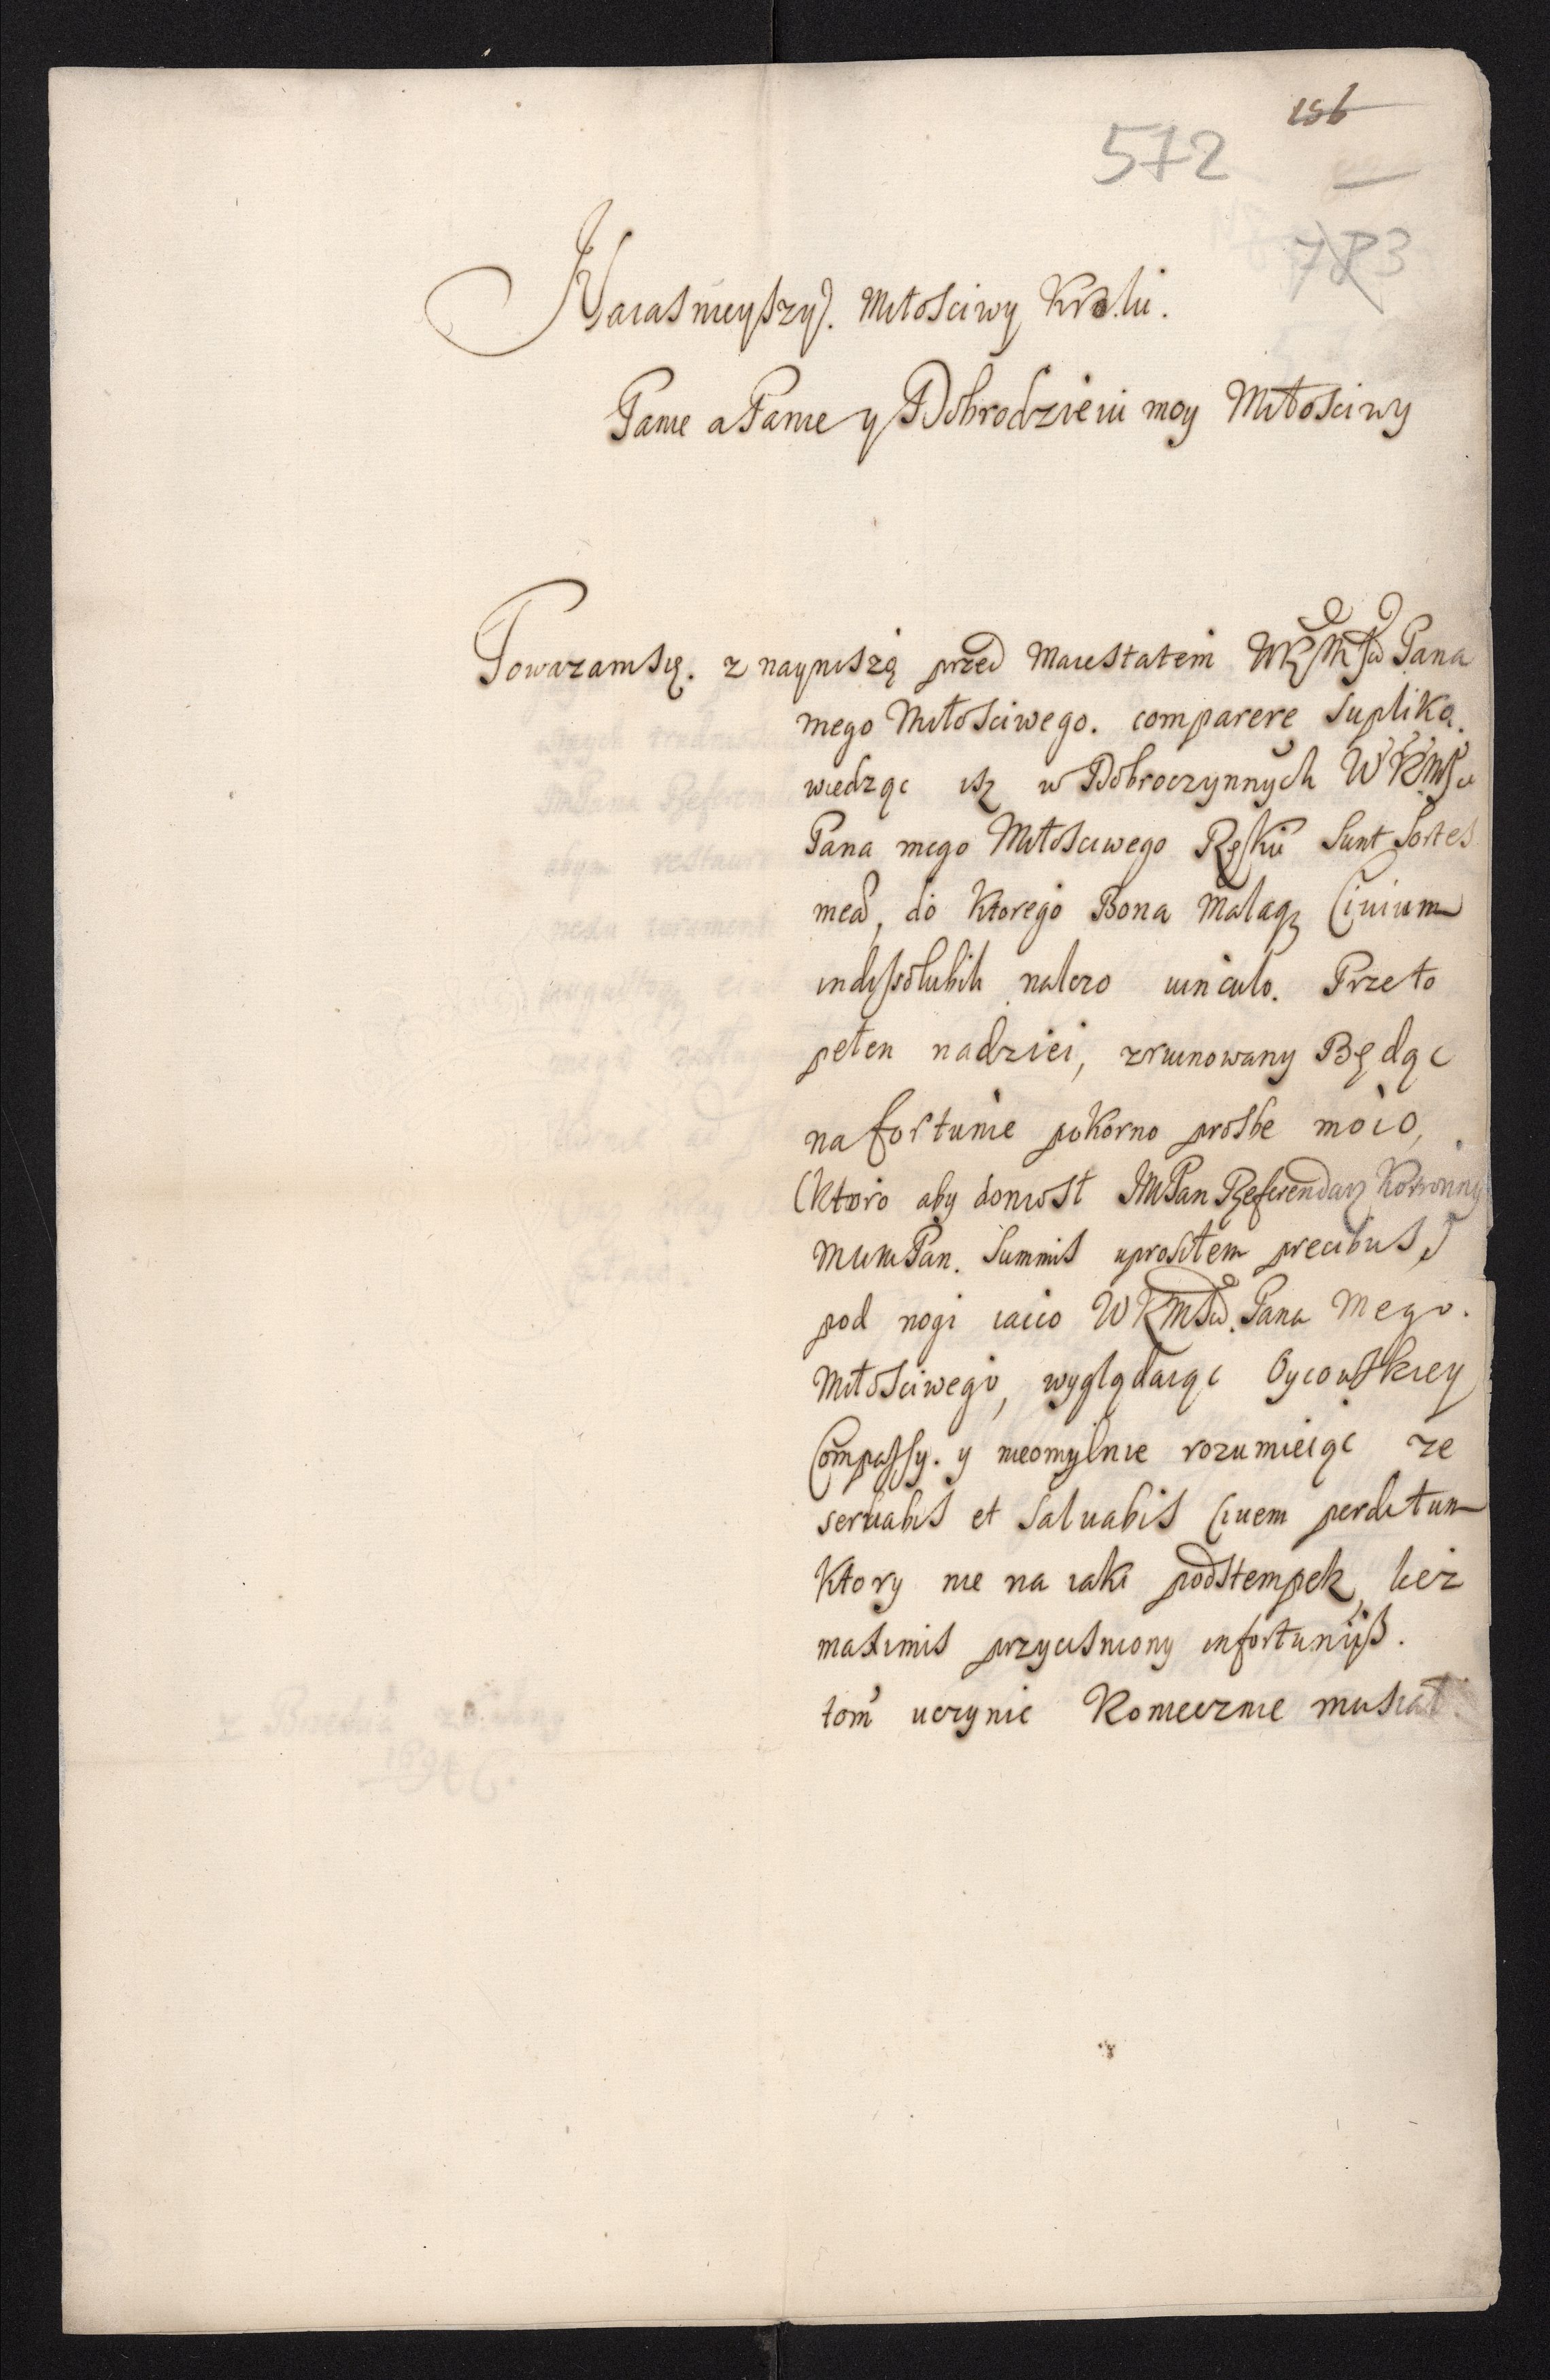 156
572
783
Naiasnieyszy. Miłosciwy Krolu.
Panie a Panie y Dobrodzieiu moy Miłosciwy
Powazam się. z nayniszą przed Maiestatem WKMsci Pana
mego Miłosciwego. comparere supliką.
wiedząc isz w Dobroczynnych WKMsci
Pana mego Miłosciwego Ręku sunt sortes
meæ, do ktorego Bona Malaq; Ciuium
indissolubili nalezo uinculo. Przeto
pełen nadziei, zruinowany Będąc
na fortunie pokorno prosbe moio,
(ktoro aby doniosł JMPan Referendarz Koronny
MuiuPan. summis uprosiłem precibus,)
pod nogi iacio WKMsci. Pana Mego.
Miłosciwego, wyglądaiąc Oycowskiey
Compassy. y nieomylnie rozumieiąc ze
seruabis et saluabis Ciuem perditum
Ktory nie na iaki podstempek, lecz
maximis przycisniony infortunijs.
tom uczynic Koniecznie musiał